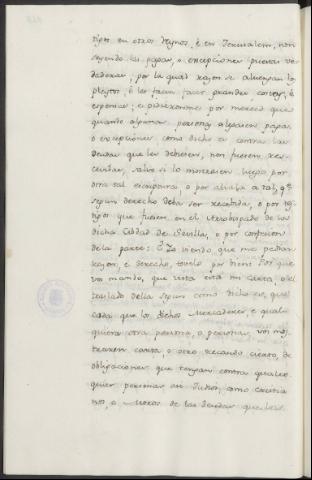 tigos en otros Reynos, é en Jerusalem, non
seyendo las pagas, o excepciones puestas ver
daderas; por la qual razon se aluengan los
pleytos, é les facen facer grandes costas, é
espensas; é pidieronme por merced que
quando algunas personas alegasen pagas,
o excepciones como dicho es contra las
deudas que les debiesen, non fuesen res-
cevidas, salvo si lo mostrasen luego por
otra tal escriptura, o por alvala a tal, qe.
segun derecho deba ser recebida, o por tes
tigos que fuesen en el Arzobispado de la
dicha Cibdad de Sevilla, o por confesion
de la parte: É Yo viendo que me pedian
razon, é derecho, tovelo por bien: Por que
vos mando, que vista esta mi carta, o el
traslado della signado como dicho es, que
cada que los dichos Mercaderes, é qual
quiera otra persona, o personas vos mos
traren carta, o otro recaudo cierto, de
obligaciones que tengan contra quales
quier personas asi Judios, como Cristia
nos, o Moros de las deudas que les